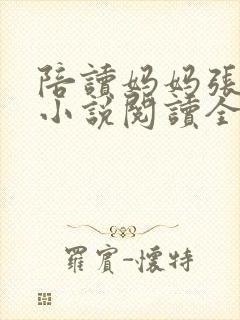 陪讀妈妈張
小說閱讀全
羅賓-懷特